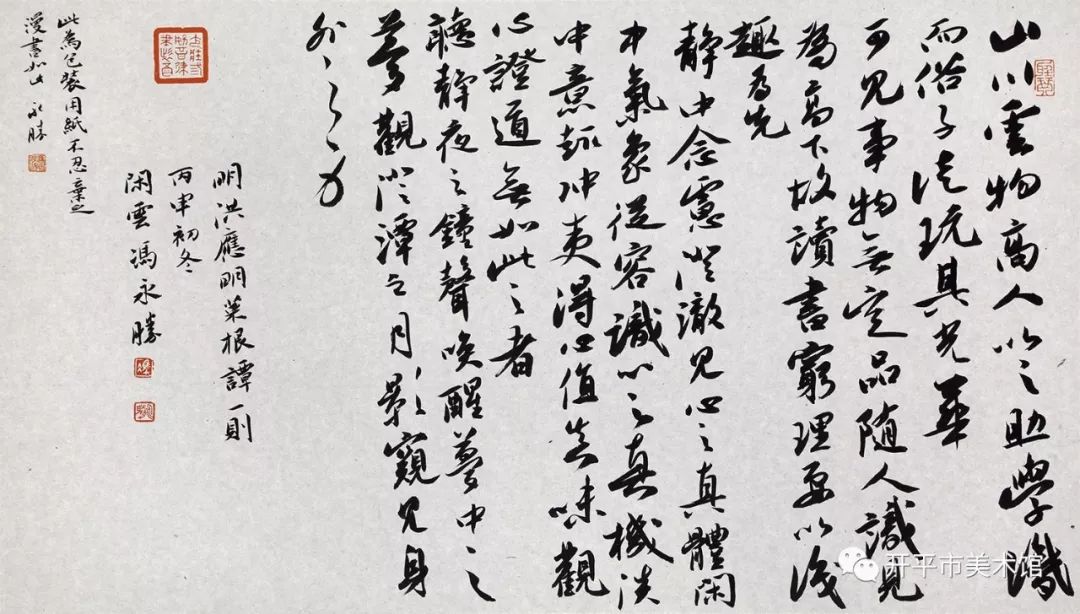 山川雲物高人以之助學識
而俗子徒玩其光華
可見事物無定品随人識見
為高下故讀書窮理要以識
趣為先
静中念慮澄澈見心之真體閑
中氣象從容識心之真機淡
中意趣冲夷得心值真味觀
心證道無如此之者
聽静夜之鐘聲唤醒夢中之
夢觀澄潭之月影窺見身
外之身
明洪應明菜根譚一則
丙申初冬
閑雲馮永勝
此為包裝用紙不忍棄之
漫書如此 永勝
开平市美术馆